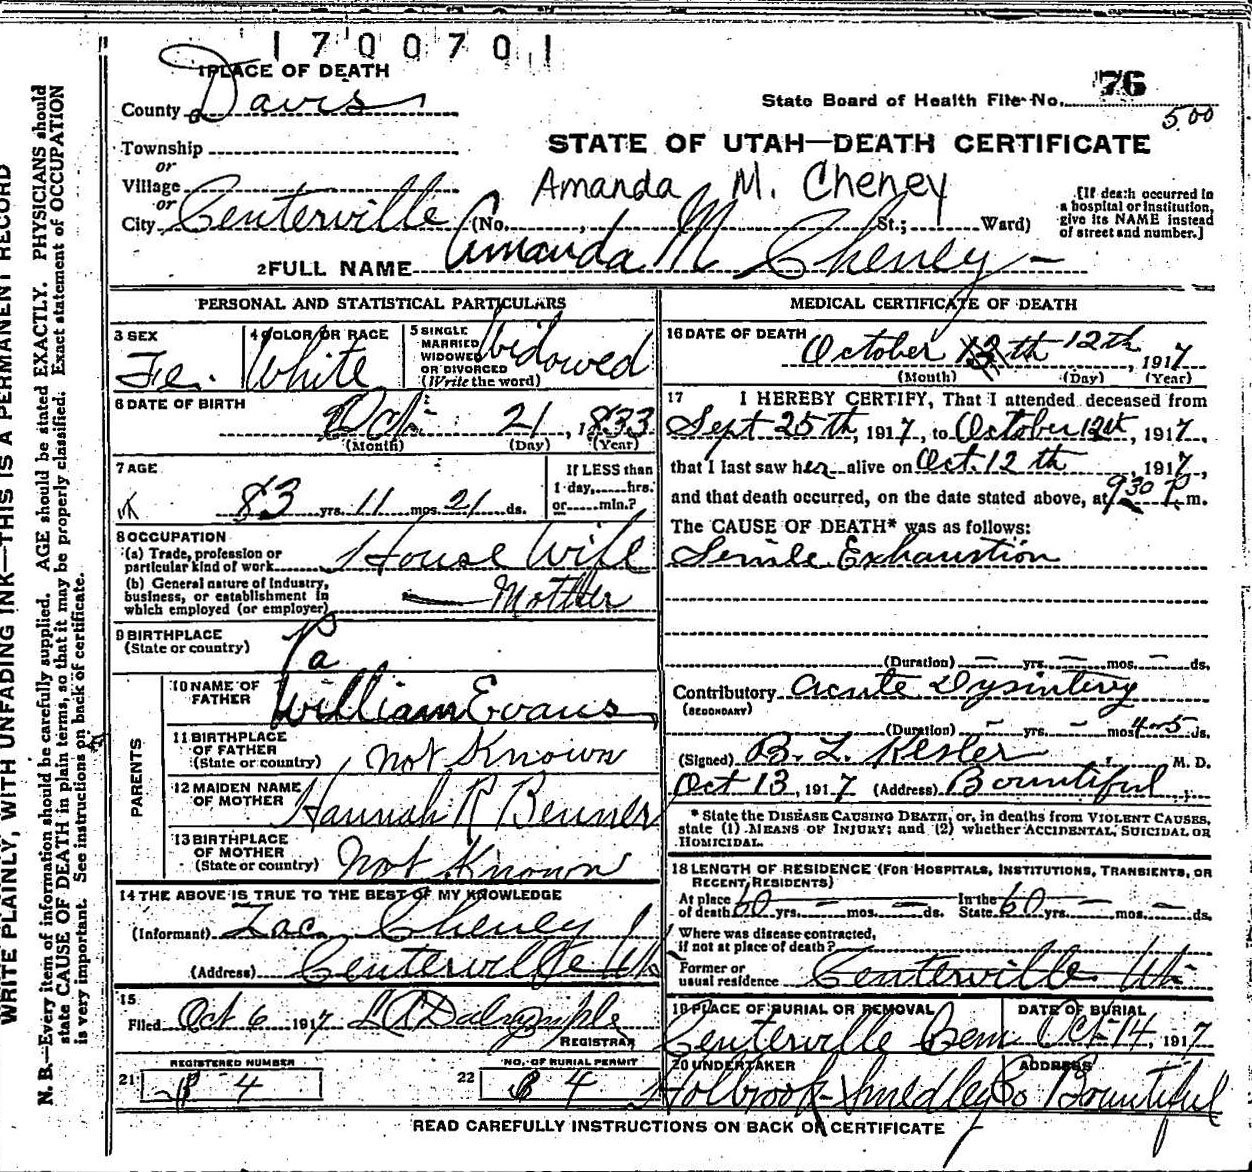 1700701
1 PLACE OF DEATH
County Davis
State Board of Health File No. 76
5.00
Township
or
Village
or
City Centerville (No. , St.; Ward)
STATE OF UTAH—DEATH CERTIFICATE
Amanda M. Cheney
[If death occurred in
a hospital or institution,
give its NAME instead
of street and number.]
2 FULL NAME Amanda M Cheney
PERSONAL AND STATISTICAL PARTICULARS
3 SEX
Fe.
4 COLOR OR RACE
White
5 SINGLE
MARRIED
WIDOWED
OR DIVORCED
(Write the word)
Widowed
6 DATE OF BIRTH
Oct. 21, 1833
(Month) (Day) (Year)
7 AGE
83 yrs. 11 mos. 21 ds.
If LESS than
1 day, hrs.
or min.?
8 OCCUPATION
(a) Trade, profession or
particular kind of work House Wife
(b) General nature of industry,
business, or establishment in
which employed (or employer) Mother
9 BIRTHPLACE
(State or country) Pa
PARENTS
10 NAME OF
FATHER William Evans
11 BIRTHPLACE
OF FATHER
(State or country) not Known
12 MAIDEN NAME
OF MOTHER Hannah R Benner
13 BIRTHPLACE
OF MOTHER
(State or country) Not Known
14 THE ABOVE IS TRUE TO THE BEST OF MY KNOWLEDGE
(Informant) Zac. Cheney
(Address) Centerville Ut
15
Filed Oct 6 1917 Dalrymple
REGISTRAR
REGISTERED NUMBER
21 4
NO. OF BURIAL PERMIT
22 4
MEDICAL CERTIFICATE OF DEATH
16 DATE OF DEATH
October 13th 12th, 1917
(Month) (Day) (Year)
17 I HEREBY CERTIFY, That I attended deceased from
Sept 25th, 1917, to October 12th, 1917,
that I last saw her alive on Oct. 12th, 1917,
and that death occurred, on the date stated above, at 9 30 P. m.
The CAUSE OF DEATH* was as follows:
Senile Exhaustion
(Duration) — yrs. — mos. — ds.
Contributory acute Dysintery
(SECONDARY)
(Duration) — yrs. — mos. 4-5 ds.
(Signed) B. L. Kesler M. D.
Oct 13, 1917 (Address) Bountiful
* State the DISEASE CAUSING DEATH, or, in deaths from VIOLENT CAUSES,
state (1) MEANS OF INJURY; and (2) whether ACCIDENTAL, SUICIDAL OR
HOMICIDAL.
18 LENGTH OF RESIDENCE (FOR HOSPITALS, INSTITUTIONS, TRANSIENTS, OR
RECENT RESIDENTS)
At place
of death 60 yrs. — mos. — ds.
In the
State 60 yrs. — mos. — ds.
Where was disease contracted,
if not at place of death?
Former or
usual residence Centerville Ut
19 PLACE OF BURIAL OR REMOVAL
Centerville Cem
DATE OF BURIAL
Oct-14, 1917
20 UNDERTAKER
Holbrook-Smedley Co
ADDRESS
Bountiful
READ CAREFULLY INSTRUCTIONS ON BACK OF CERTIFICATE
WRITE PLAINLY, WITH UNFADING INK—THIS IS A PERMANENT RECORD
N. B.—Every item of information should be carefully supplied. AGE should be stated EXACTLY. PHYSICIANS should
state CAUSE OF DEATH in plain terms, so that it may be properly classified. Exact statement of OCCUPATION
is very important. See instructions on back of certificate.